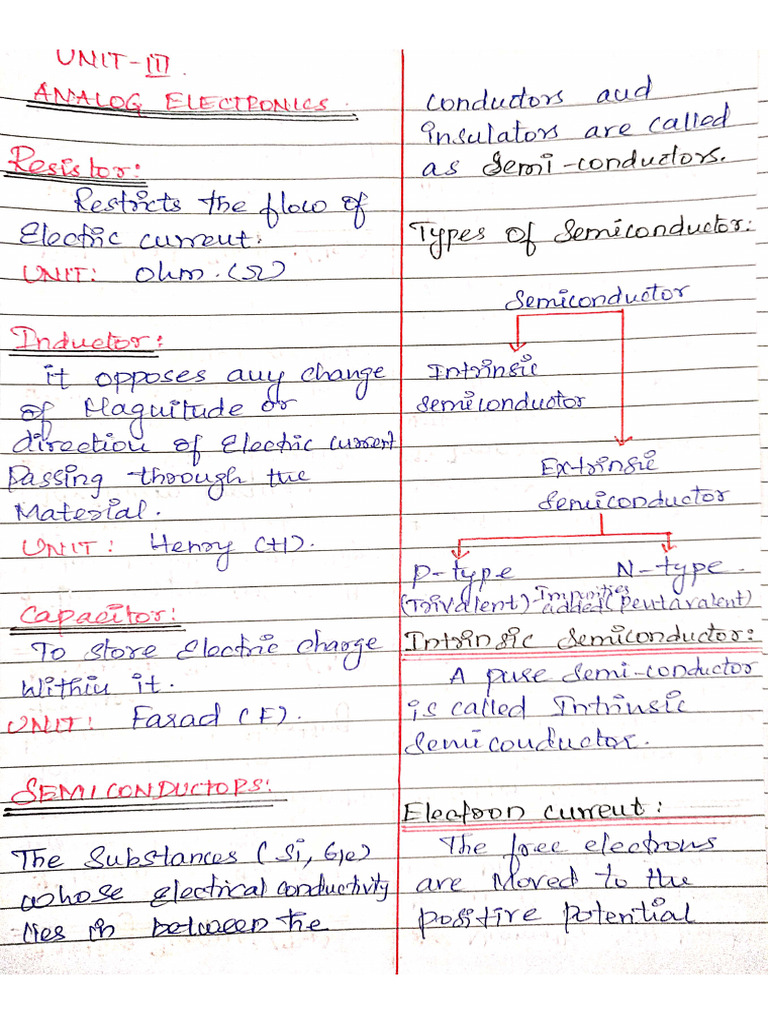 UNIT-III.
ANALOG ELECTRONICS.
Resistor:
Restricts the flow of
Electric current.
UNIT: Ohm.(Ω)
Inductor:
it opposes any change
of Magnitude or
direction of Electric current
Passing through the
Material.
UNIT: Henry (H).
Capacitor:
To store Electric charge
within it.
UNIT: Farad (F).
SEMICONDUCTORS:
The Substances (Si, Ge)
whose electrical conductivity
lies in between the
conductors and
insulators are called
as Semi-conductors.
Types of Semiconductor:
Semiconductor
Intrinsic
Semiconductor
Extrinsic
Semiconductor
P-type N-type.
(Trivalent)-Impurities added(Pentavalent)
Intrinsic Semiconductor:
A pure Semi-conductor
is called Intrinsic
Semiconductor.
Electron current:
The free electrons
are Moved to the
positive potential